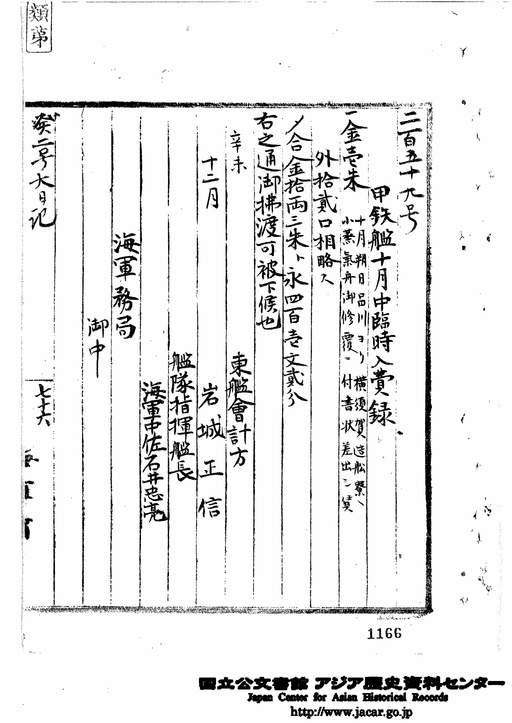 類第
二百五十九号
甲鉄艦十月中臨時入費録
一金壱朱
十月朔日品川ヨリ横須賀造船寮ヘ
小蒸氣舟御修覆ニ付書状差出シ賃
外拾貳口相略ス
〆合金拾両三朱ト永四百壱文貳分
右之通御拂渡可被下候也
辛未
十二月
東艦會計方
岩城正信
艦隊指揮艦長
海軍中佐石井忠亮
海軍務局
御中
癸二号大日記
七十六
海軍省
1166
国立公文書館 アジア歴史資料センター
Japan Center for Asian Historical Records
http://www.jacar.go.jp